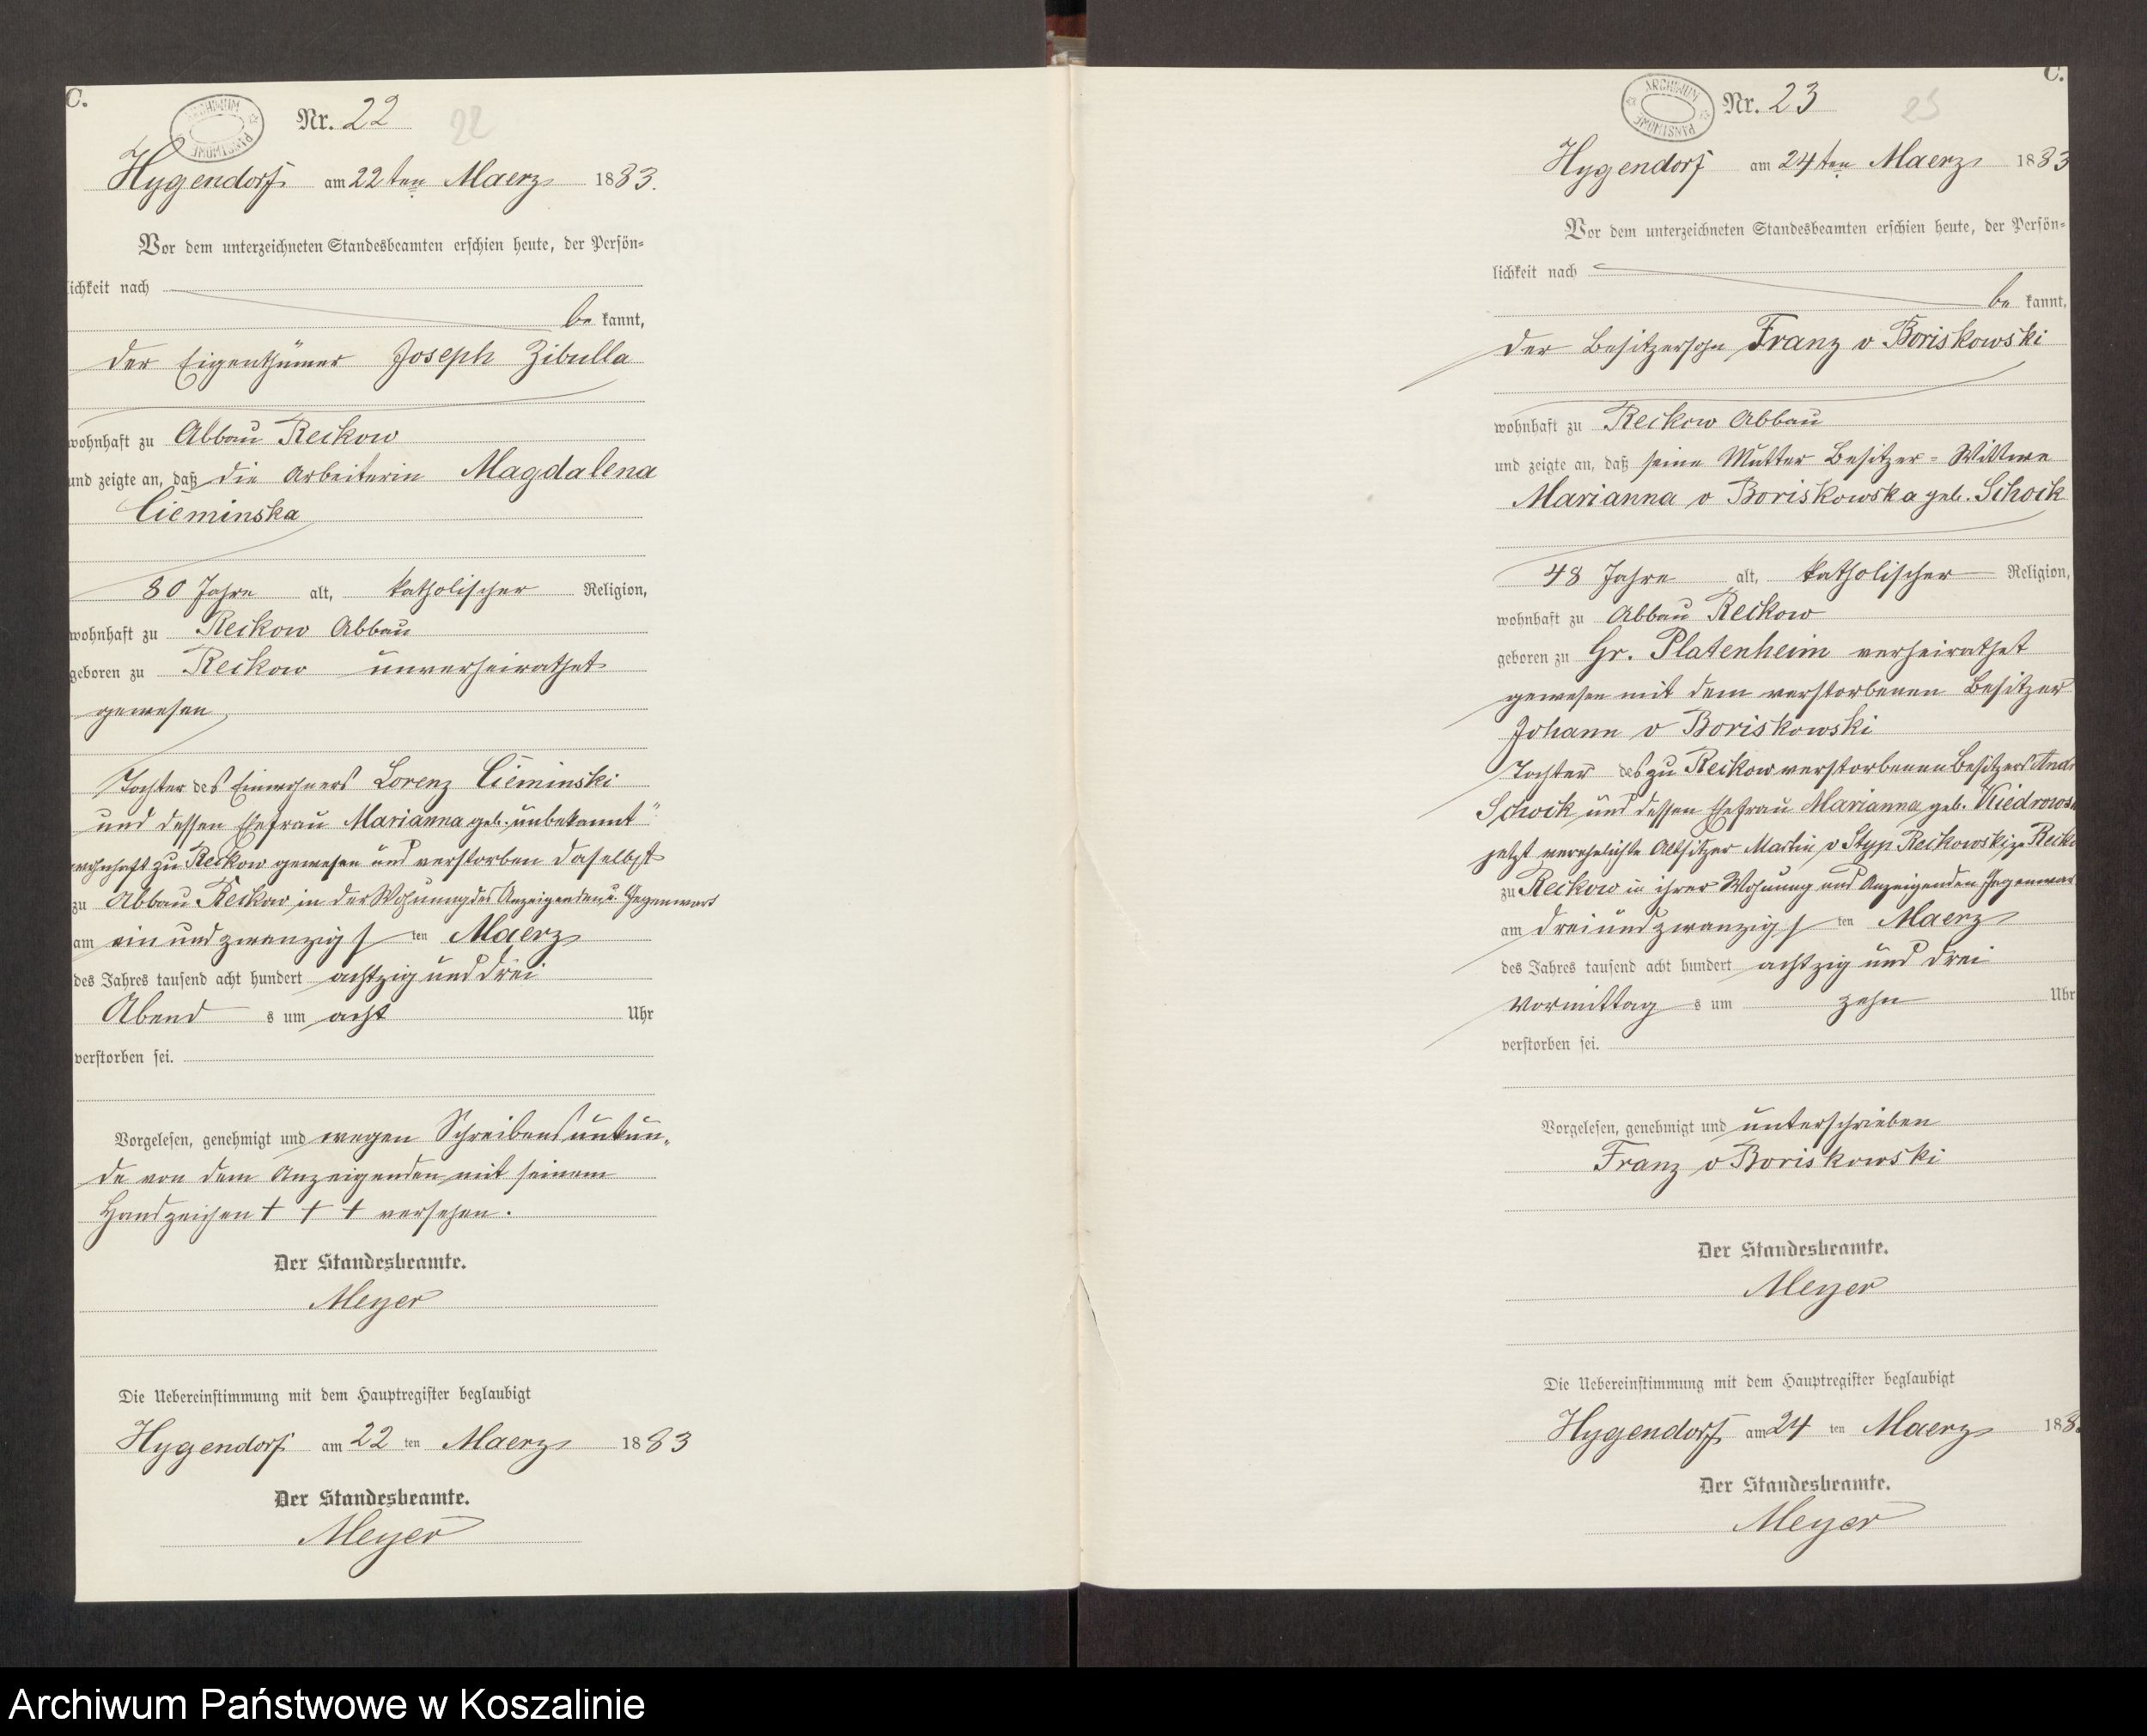 C.
ARCHIWUM PAŃSTWOWE
Nr. 22
22
Hygendorf am 22ten Maerz 1883.
Vor dem unterzeichneten Standesbeamten erschien heute, der Persön-
lichkeit nach
be kannt,
der Eigenthümer Joseph Zibulla
wohnhaft zu Abbau Reckow
und zeigte an, daß die Arbeiterin Magdalena
Cieminska
80 Jahre alt, katholischer Religion,
wohnhaft zu Reckow Abbau
geboren zu Reckow unverheirathet
gewesen
Tochter des Einwohners Lorenz Cieminski
und dessen Ehefrau Marianna geb. „unbekannt“
wohnhaft zu Reckow gewesen und verstorben daselbst
zu Abbau Reckow in der Wohnung des Anzeigenden u. Gegenwart
am ein und zwanzigs ten Maerz
des Jahres tausend acht hundert achtzig und drei
Abend s um acht Uhr
verstorben sei.
Vorgelesen, genehmigt und wegen Schreibensunkun-
de von dem Anzeigenden mit seinem
Handzeichen + + + versehen.
Der Standesbeamte.
Meyer
Die Uebereinstimmung mit dem Hauptregister beglaubigt
Hygendorf am 22 ten Maerz 1883
Der Standesbeamte.
Meyer
C.
ARCHIWUM PAŃSTWOWE
Nr. 23
23
Hygendorf am 24ten Maerz 1883
Vor dem unterzeichneten Standesbeamten erschien heute, der Persön-
lichkeit nach
be kannt,
der Besitzersohn Franz v Boriskowski
wohnhaft zu Reckow Abbau
und zeigte an, daß seine Mutter Besitzer-Wittwe
Marianna v Boriskowska geb. Schock
48 Jahre alt, katholischer Religion,
wohnhaft zu Abbau Reckow
geboren zu Gr. Platenheim verheirathet
gewesen mit dem verstorbenen Besitzer
Johann v Boriskowski
Tochter des zu Reckow verstorbenen Besitzers And
Schock und dessen Ehefrau Marianna geb. Kiedrows
jetzt verehelichte Altsitzer Martin v Styp Reckowski zu Recko
zu Reckow in ihrer Wohnung und Anzeigenden Gegenwar
am dreiundzwanzigs ten Maerz
des Jahres tausend acht hundert achtzig und drei
Vormittag s um zehn Uhr
verstorben sei.
Vorgelesen, genehmigt und unterschrieben
Franz v Boriskowski
Der Standesbeamte.
Meyer
Die Uebereinstimmung mit dem Hauptregister beglaubigt
Hygendorf am 24 ten Maerz 188
Der Standesbeamte.
Meyer
Archiwum Państwowe w Koszalinie